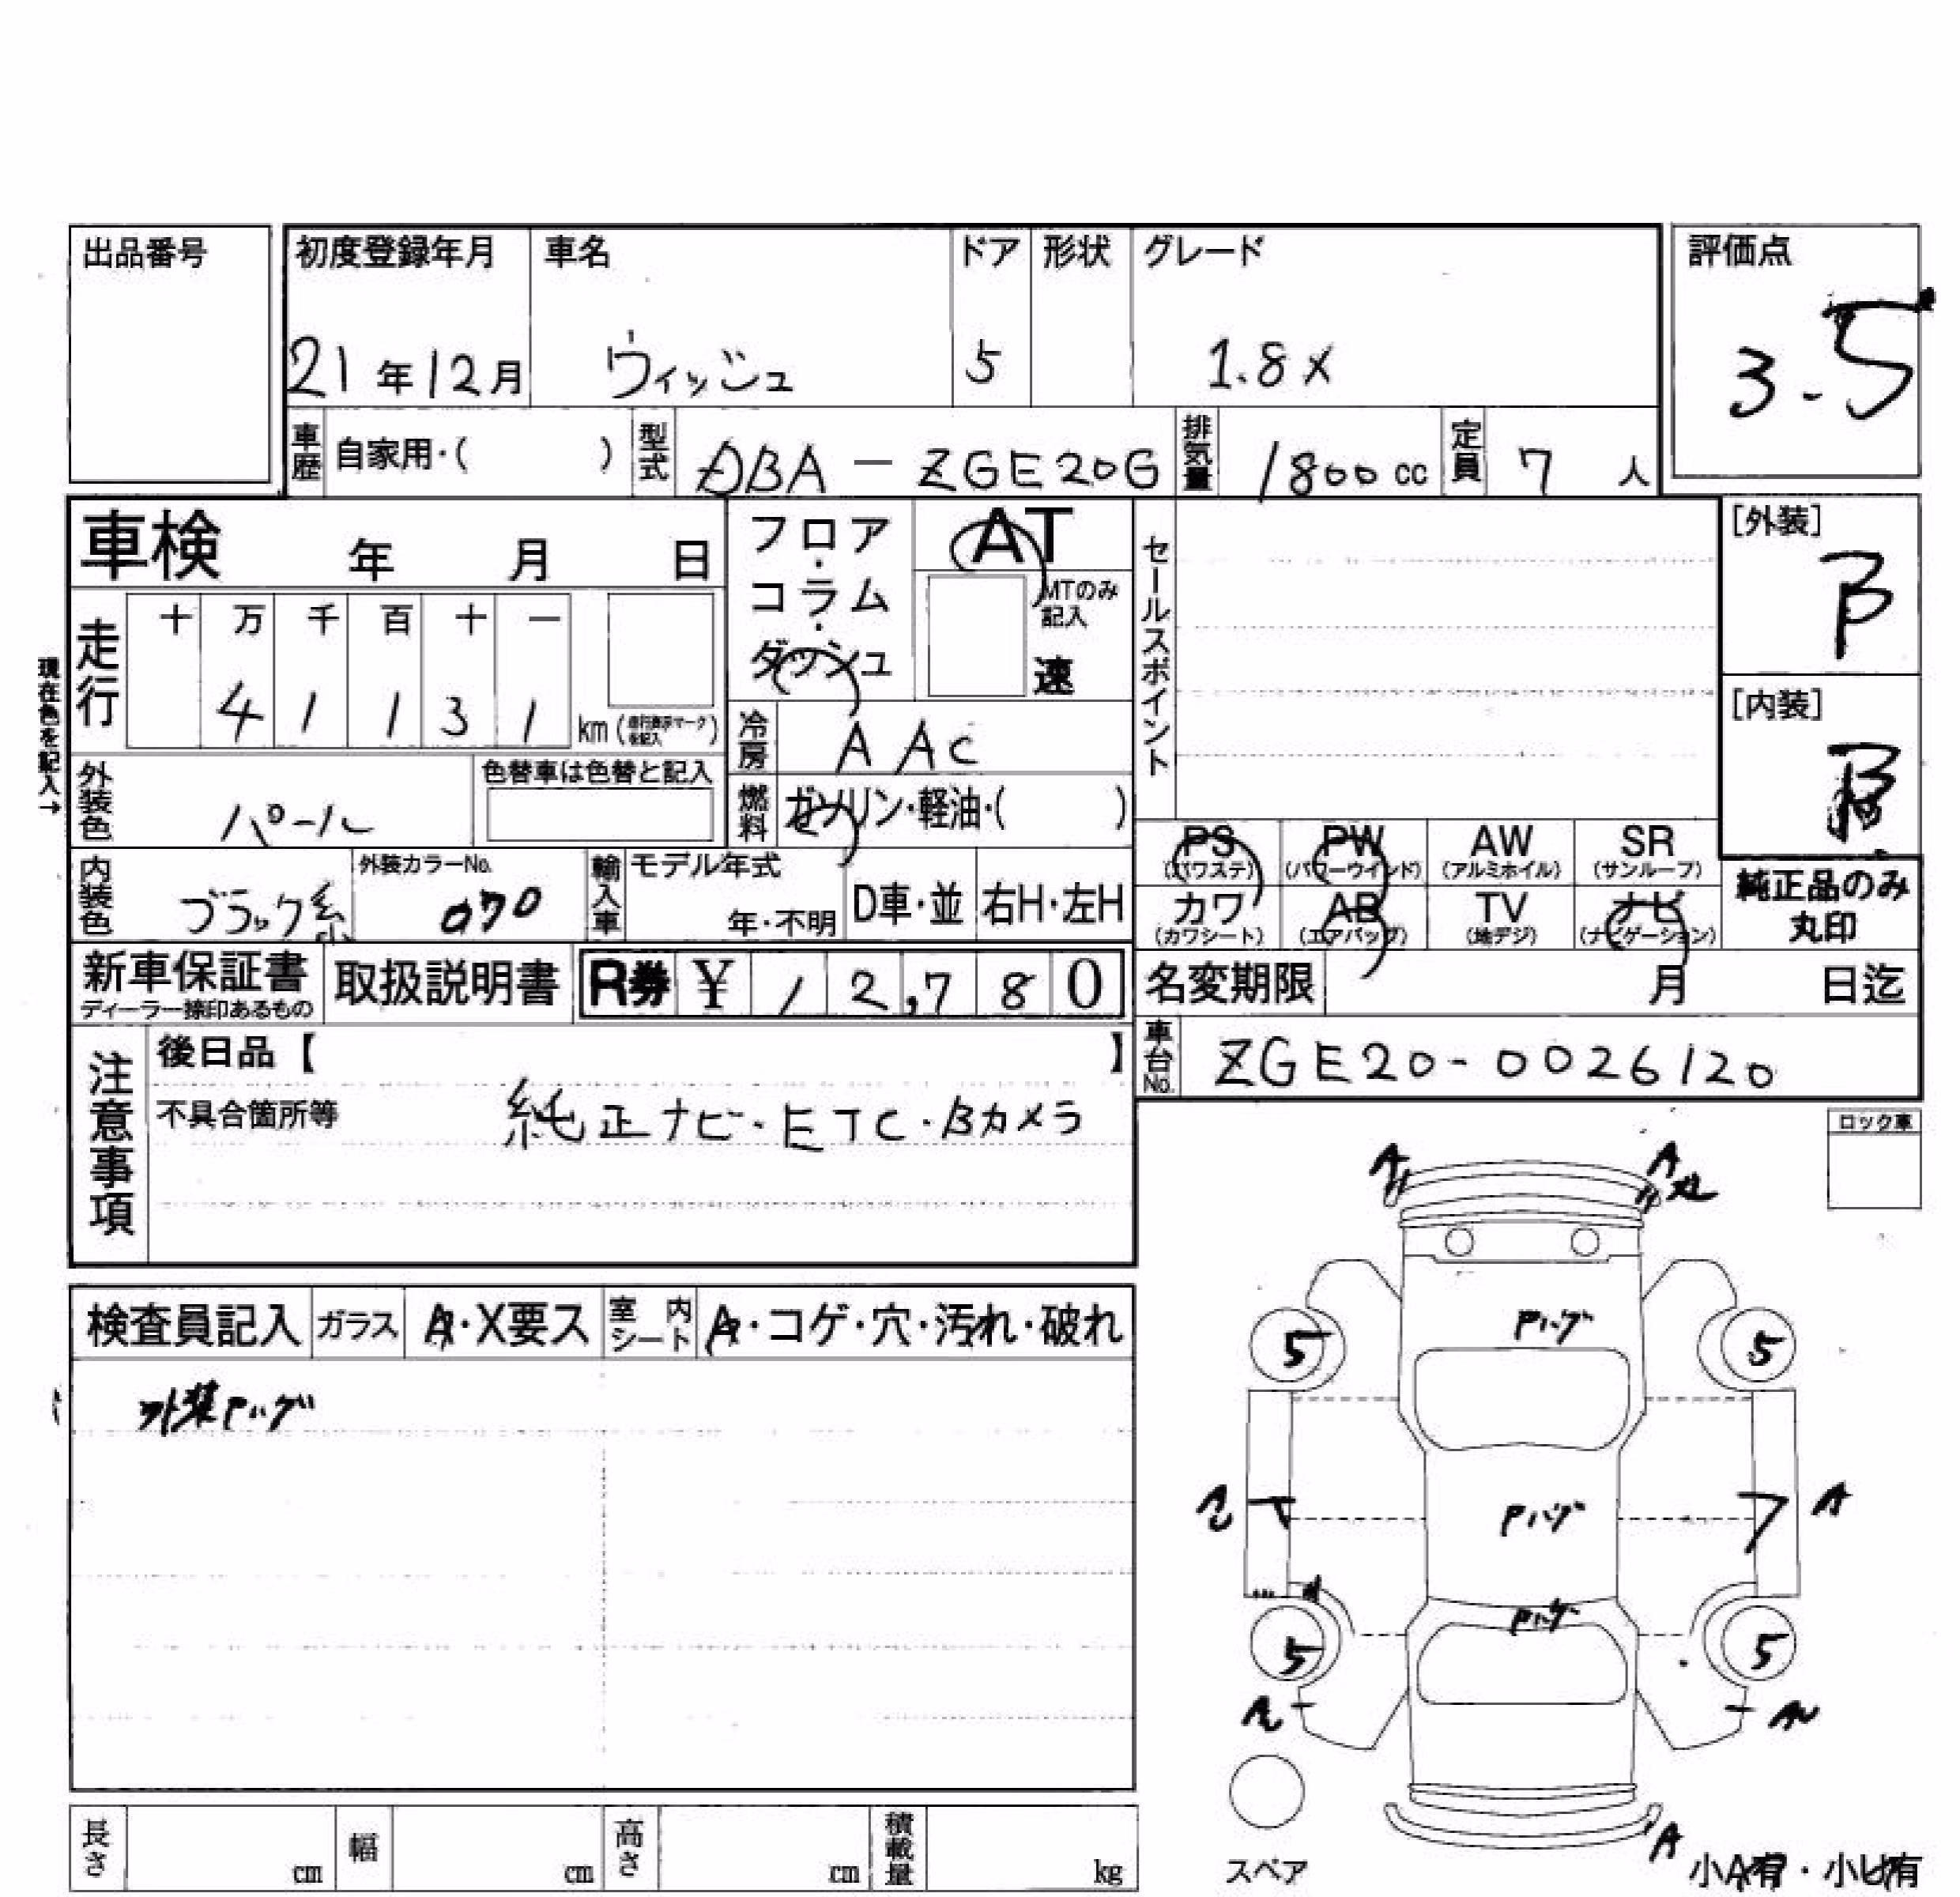 出品番号
初度登録年月 車名 ドア 形状 グレード 評価点
21年12月 ウィッシュ 5 1.8X 3.5
車歴 自家用・( ) 型式 DBA-ZGE20G 排気量 1800cc 定員 7人
車検 年 月 日
フロア・コラム・ダッシュ
AT
MTのみ記入
速
セールスポイント
[外装]
B
[内装]
B
現在色を記入→
走行 十 万 千 百 十 一
4 1 1 3 1 km(走行表示マークを記入)
冷房 AAC
外装色 パール
色替車は色替と記入
燃料 ガソリン・軽油・( )
PS (パワステ) PW (パワーウインド) AW (アルミホイル) SR (サンルーフ)
カワ (カワシート) AB (エアバック) TV (地デジ) ナビ (ナビゲーション)
純正品のみ丸印
内装色 ブラック系 外装カラーNo. 070
輸入車 モデル年式 年・不明 D車・並 右H・左H
新車保証書 ディーラー捺印あるもの
取扱説明書 R券 ¥12,780
名変期限 月 日迄
車台No. ZGE20-0026120
注意事項
後日品【 】
不具合箇所等 純正ナビ・ETC・Bカメラ
ロック車
検査員記入 ガラス A・X要ス 室内シート A・コゲ・穴・汚れ・破れ
外装Pハゲ
A A
Pハゲ
5 5
Pハゲ A
Pハゲ
5 5
A
スペア
小A有・小U有
長さ cm 幅 cm 高さ cm 積載量 kg